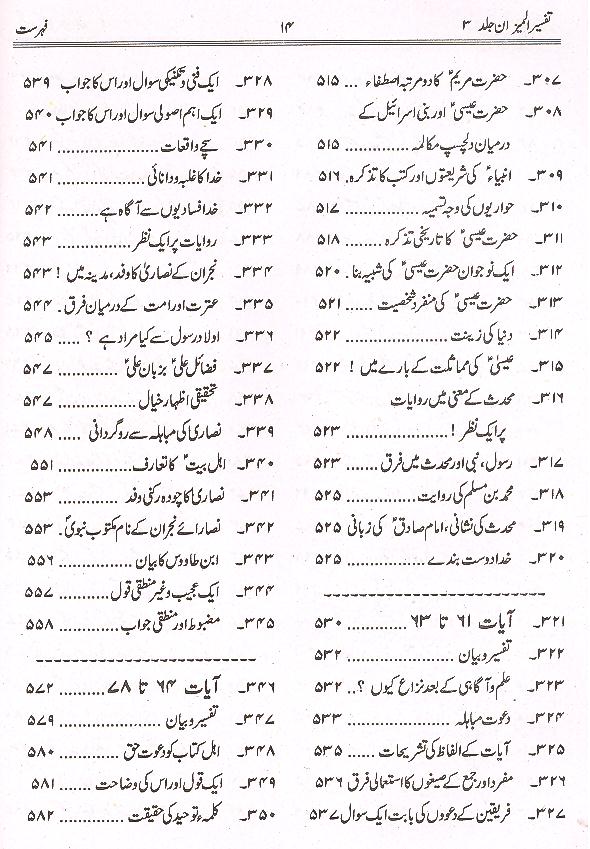 تفسیر المیزان جلد ۳
۱۴
فہرست
۳۰۷۔ حضرت مریمؑ کا دو مرتبہ اصطفاء ... ۵۱۵
۳۰۸۔ حضرت عیسیٰؑ اور بنی اسرائیل کے
درمیان دلچسپ مکالمہ .............. ۵۱۵
۳۰۹۔ انبیاءؑ کی شریعتوں اور کتب کا تذکرہ. ۵۱۶
۳۱۰۔ حواریوں کی وجہ تسمیہ .............. ۵۱۷
۳۱۱۔ حضرت عیسیٰؑ کا تاریخی تذکرہ ........ ۵۱۸
۳۱۲۔ ایک نوجوان حضرت عیسیٰؑ کی شبیہ بنا. ۵۲۰
۳۱۳۔ حضرت عیسیٰؑ کی منفرد شخصیت ...... ۵۲۱
۳۱۴۔ دنیا کی زینت ................... ۵۲۲
۳۱۵۔ عیسیٰؑ کی مماثلت کے بارے میں ! ۵۲۲
۳۱۶۔ محدث کے معنی میں روایات
پر ایک نظر ! ..................... ۵۲۳
۳۱۷۔ رسول، نبی اور محدث میں فرق ....... ۵۲۳
۳۱۸۔ محمد بن مسلم کی روایت .............. ۵۲۵
۳۱۹۔ محدث کی نشانی، امام صادقؑ کی زبانی ۵۲۵
۳۲۰۔ خدا دوست بندے ................ ۵۲۵
۳۲۱۔ آیات ۶۱ تا ۶۳ ............. ۵۳۰
۳۲۲۔ تفسیر و بیان ..................... ۵۳۲
۳۲۳۔ علم و آگاہی کے بعد نزاع کیوں ؟.. ۵۳۲
۳۲۴۔ دعوت مباہلہ .................... ۵۳۳
۳۲۵۔ آیات کے الفاظ کی تشریحات ...... ۵۳۵
۳۲۶۔ مفرد اور جمع کے صیغوں کا استعمالی فرق ۵۳۶
۳۲۷۔ فریقین کے دعووں کی بابت ایک سوال ۵۳۷
۳۲۸۔ ایک فنی و تکنیکی سوال اور اس کا جواب ۵۳۹
۳۲۹۔ ایک اہم اصولی سوال اور اس کا جواب ۵۴۰
۳۳۰۔ سچے واقعات ................... ۵۴۱
۳۳۱۔ خدا کا غلبہ و دانائی ................ ۵۴۱
۳۳۲۔ خدا فسادیوں سے آگاہ ہے ......... ۵۴۲
۳۳۳۔ روایات پر ایک نظر ............... ۵۴۳
۳۳۴۔ نجران کے نصاریٰ کا وفد، مدینہ میں ! ۵۴۳
۳۳۵۔ عترت اور امت کے درمیان فرق. ۵۴۴
۳۳۶۔ اولاد رسول سے کیا مراد ہے ؟ ..... ۵۴۵
۳۳۷۔ فضائل علیؑ بزبان علیؑ ............ ۵۴۷
۳۳۸۔ تحقیقی اظہار خیال ................ ۵۴۷
۳۳۹۔ نصاریٰ کی مباہلہ سے روگردانی ..... ۵۴۸
۳۴۰۔ اہل بیتؑ کا تعارف .............. ۵۵۱
۳۴۱۔ نصاریٰ کا چودہ رکنی وفد ............ ۵۵۳
۳۴۲۔ نصارائے نجران کے نام مکتوب نبویؐ. ۵۵۳
۳۴۳۔ ابن طاووس کا بیان ............... ۵۵۶
۳۴۴۔ ایک عجیب و غیر منطقی قول ......... ۵۵۷
۳۴۵۔ مضبوط اور منطقی جواب ............ ۵۵۸
۳۴۶۔ آیات ۶۴ تا ۷۸ .......... ۵۷۲
۳۴۷۔ تفسیر و بیان ..................... ۵۷۹
۳۴۸۔ اہل کتاب کو دعوت حق ........... ۵۸۰
۳۴۹۔ ایک قول اور اس کی وضاحت ...... ۵۸۱
۳۵۰۔ کلمہء توحید کی حقیقت ............. ۵۸۲